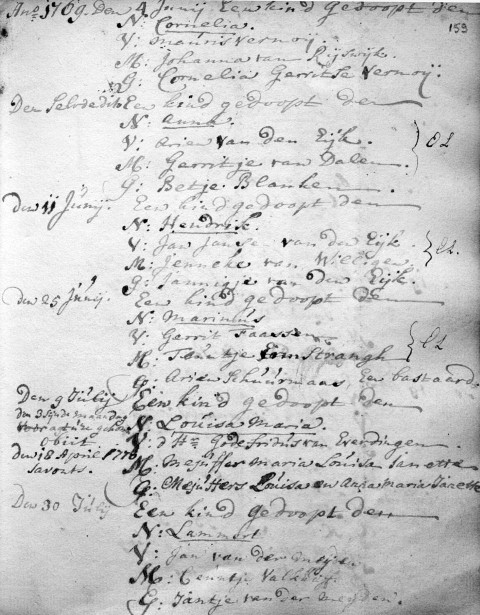 Ano 1769. Den 4 Junij Een kind gedoopt den
159
N: Cornelia.
V: Mauris Vernoij.
M: Johanna van Rijswijk.
G: Cornelia Gerritse Vernoij.
Den Selvde dito Een kind gedoopt den
N: Anna.
V: Arien van den Eijk.
M: Gerritje van Dalen.
G: Betje Blanken.
den 11 Junij. Een kind gedoopt den
N: Hendrik.
V: Jan Janse van den Eijk.
M: Jenneke van Willigen.
G: Jannigje van den Eijk.
den 25 Junij. Een kind gedoopt den
N: Marinus
V: Gerrit Faassen
M: Strangh
G: Arie Schuurmans, Een bastaard
Den 9 Julij Een kind gedoopt den
N: Louisa Maria.
obiit
V: d Hr. Godefridus van Everdingen
Den 18 April 1770
M: Mejuffer Maria Louisa Janette
savonts.
G: Mejuffers Louisa en Anna Maria Janette
Den 30 Julij Een kind gedoopt den
N: Lammert
V: Jan van der
M:
G: Jantje van der Heijden.